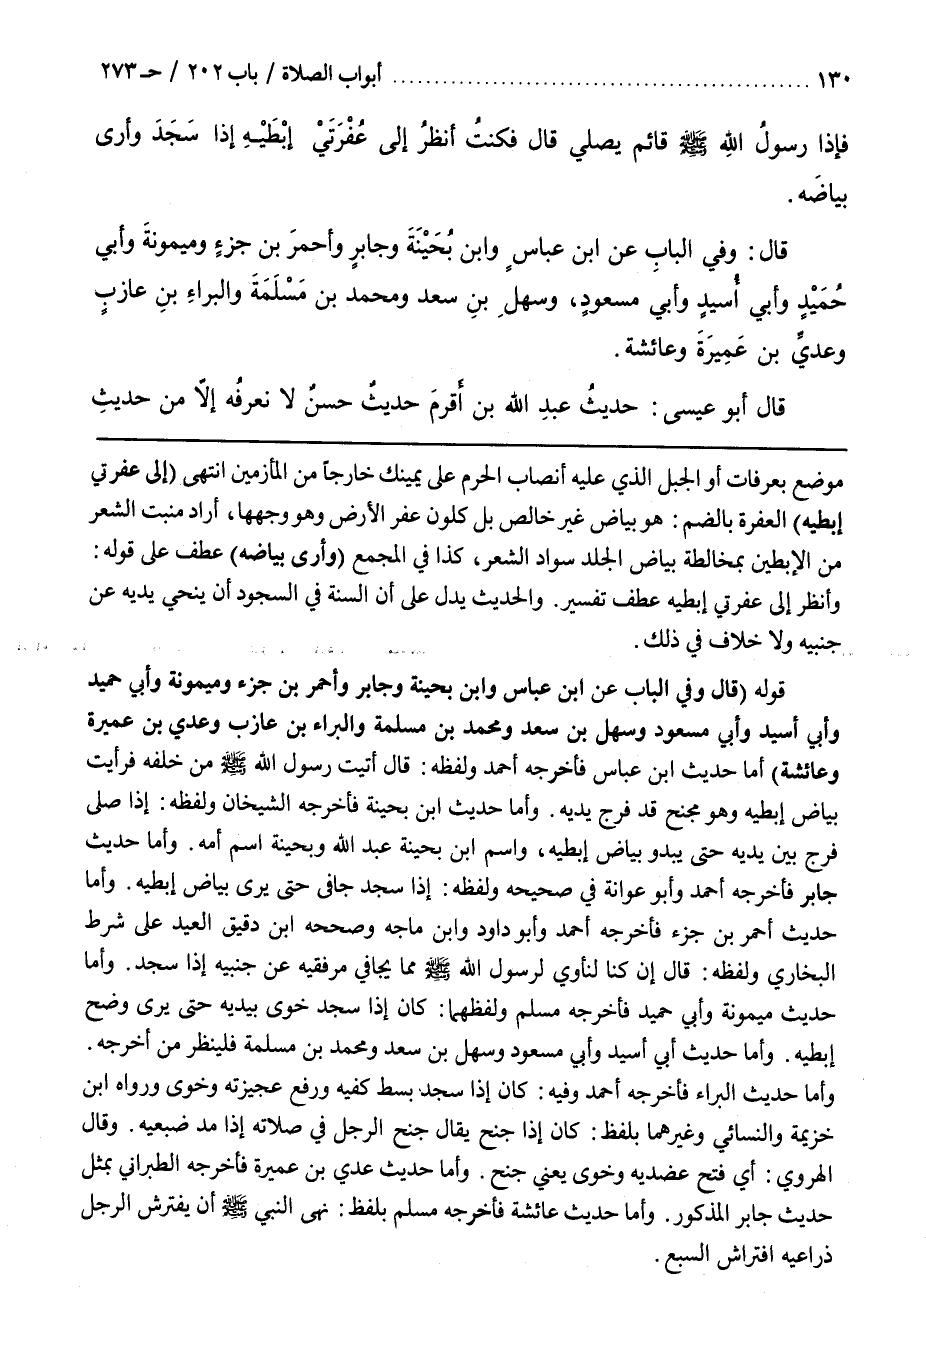 ١٣٠ ................................................ أبواب الصلاة / باب ٢٠٢ / حـ ٢٧٣
فإذا رسولُ اللهِ ﷺ قائم يصلي قال فكنتُ أنظرُ إلى عُفْرَتَيْ إبْطَيْهِ إذا سَجَدَ وأرى
بياضَه .
قال : وفي البابِ عن ابن عباسٍ وابن بُحَيْنَةَ وجابرٍ وأحمرَ بن جزءٍ وميمونةَ وأبي
حُمَيْدٍ وأبي أُسيدٍ وأبي مسعودٍ، وسهلِ بنِ سعد ومحمد بن مَسْلَمَةَ والبراءِ بنِ عازبٍ
وعديِّ بن عَمِيرَةَ وعائشة .
قال أبو عيسى : حديثُ عبدِ الله بن أَقرمَ حديثٌ حسنٌ لا نعرفُه إلاّ من حديثِ
موضع بعرفات أو الجبل الذي عليه أنصاب الحرم على يمينك خارجاً من المأزمين انتهى (إلى عفرتي
إبطيه) العفرة بالضم : هو بياض غير خالص بل كلون عفر الأرض وهو وجهها، أراد منبت الشعر
من الإبطين بمخالطة بياض الجلد سواد الشعر، كذا في المجمع (وأرى بياضه) عطف على قوله :
وأنظر إلى عفرتي إبطيه عطف تفسير. والحديث يدل على أن السنة في السجود أن ينحي يديه عن
جنبيه ولا خلاف في ذلك.
قوله (قال وفي الباب عن ابن عباس وابن بحينة وجابر وأحمر بن جزء وميمونة وأبي حميد
وأبي أسيد وأبي مسعود وسهل بن سعد ومحمد بن مسلمة والبراء بن عازب وعدي بن عميرة
وعائشة) أما حديث ابن عباس فأخرجه أحمد ولفظه : قال أتيت رسول الله ﷺ من خلفه فرأيت
بياض إبطيه وهو مجنح قد فرج يديه. وأما حديث ابن بحينة فأخرجه الشيخان ولفظه : إذا صلى
فرج بين يديه حتى يبدو بياض إبطيه، واسم ابن بحينة عبد الله وبحينة اسم أمه. وأما حديث
جابر فأخرجه أحمد وأبو عوانة في صحيحه ولفظه : إذا سجد جافى حتى يرى بياض إبطيه. وأما
حديث أحمر بن جزء فأخرجه أحمد وأبو داود وابن ماجه وصححه ابن دقيق العيد على شرط
البخاري ولفظه : قال إن كنا لنأوي لرسول الله ﷺ مما يجافي مرفقيه عن جنبيه إذا سجد. وأما
حديث ميمونة وأبي حميد فأخرجه مسلم ولفظهما : كان إذا سجد خوى بيديه حتى يرى وضح
إبطيه. وأما حديث أبي أسيد وأبي مسعود وسهل بن سعد ومحمد بن مسلمة فلينظر من أخرجه.
وأما حديث البراء فأخرجه أحمد وفيه : كان إذا سجد بسط كفيه ورفع عجيزته وخوى ورواه ابن
خزيمة والنسائي وغيرهما بلفظ : كان إذا جنح يقال جنح الرجل في صلاته إذا مد ضبعيه. وقال
الهروي : أي فتح عضديه وخوى يعني جنح. وأما حديث عدي بن عميرة فأخرجه الطبراني بمثل
حديث جابر المذكور. وأما حديث عائشة فأخرجه مسلم بلفظ : نهى النبي ﷺ أن يفترش الرجل
ذراعيه افتراش السبع .